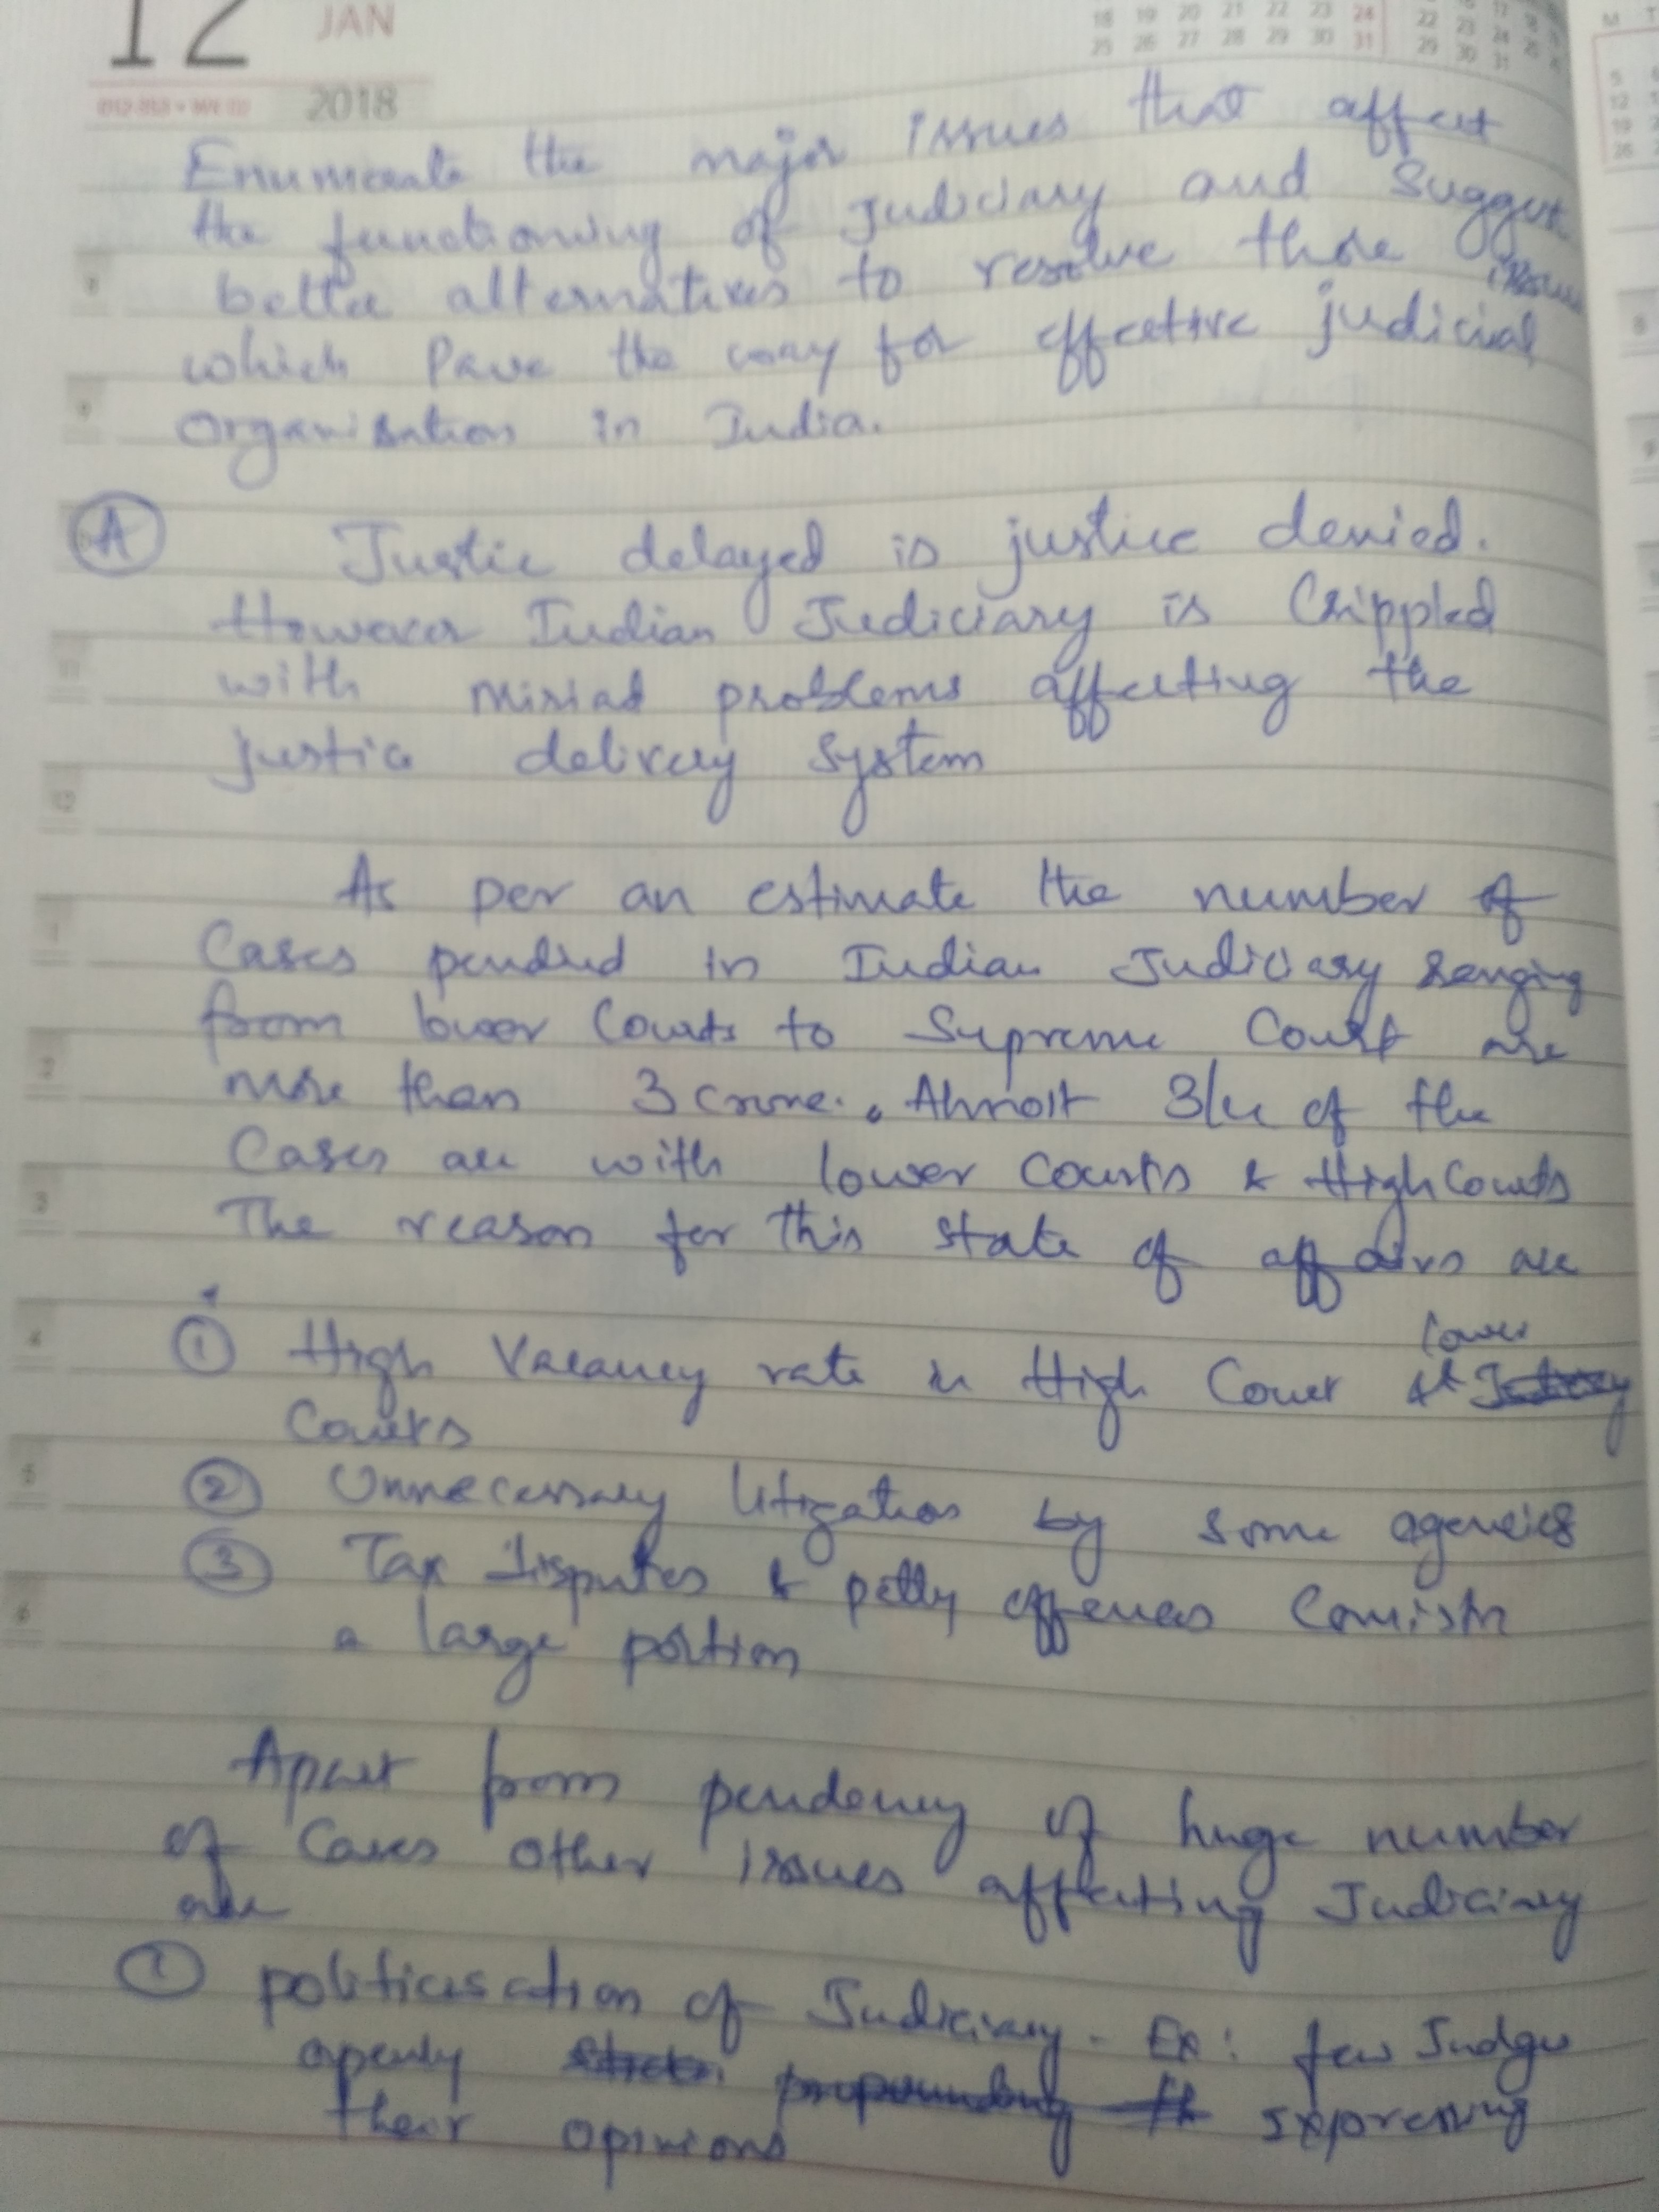 12 JAN
2018
18 19 20 21 22 23 24
25 26 27 28 29 30 31
Enumerate the major issues that affect
the functioning of Judiciary and suggest
better alternatives to resolve those issues
which Pave the way for effective judicial
Organisation in India.
A Justic delayed is justice denied.
However Indian Judiciary is Crippled
with miriad problems affecting the
justice delivery System
As per an estimate the number of
Cases pended in Indian Judiciary ranging
from lower Courts to Supreme Court are
more than 3 crore. Almost 3/4 of the
Cases are with lower Courts & High Courts
The reason for this state of affairs are
① High Vacancy rate in High Court & lower
Courts
② Unnecessary litigation by some agencies
③ Tax Disputes & petty offences Consists
a large portion
Apart from pendency of huge number
of Cases other issues affecting Judiciary
are
① politicisation of Judiciary. Ex: few Judges
openly expressing
their opinions